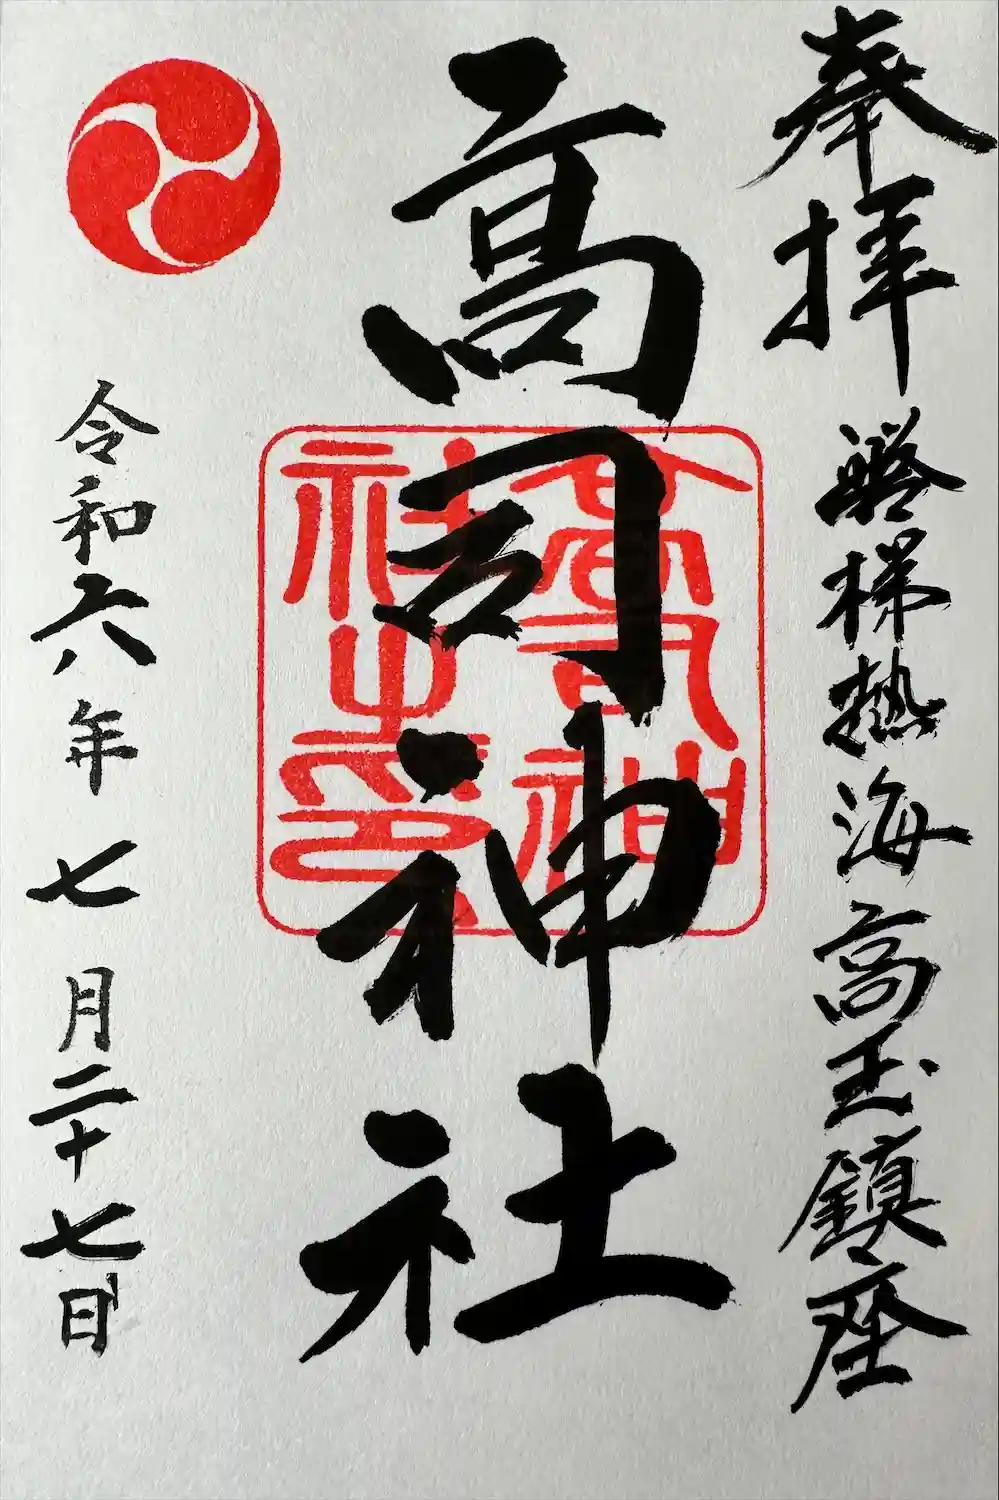 奉拝
磐梯熱海高玉鎮座
高司神社
高司神社之印
令和六年七月二十七日